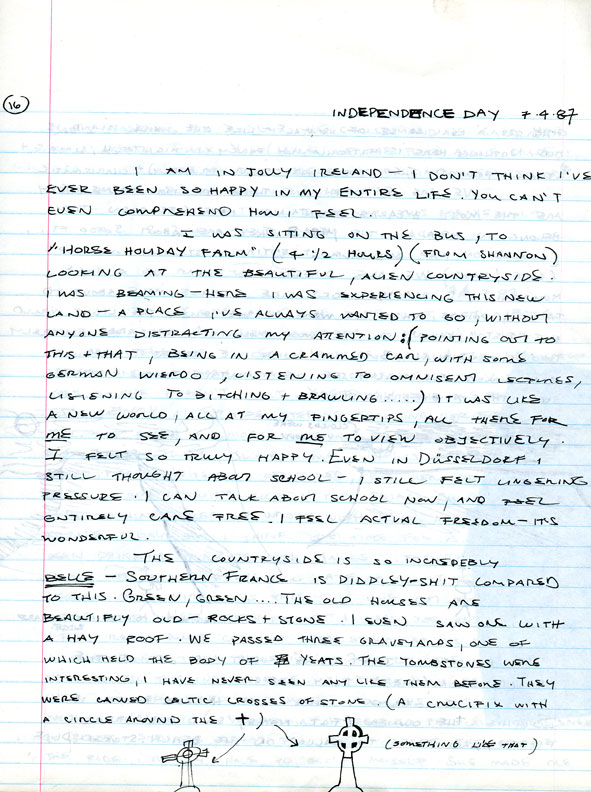 16
INDEPENDENCE DAY 7.4.87
I AM IN JOLLY IRELAND – I DON'T THINK I'VE
EVER BEEN SO HAPPY IN MY ENTIRE LIFE. YOU CAN'T
EVEN COMPREHEND HOW I FEEL.
I WAS SITTING ON THE BUS, TO
"HORSE HOLIDAY FARM" (4 1/2 HOURS) (FROM SHANNON)
LOOKING AT THE BEAUTIFUL, ALIEN COUNTRYSIDE.
I WAS BEAMING – HERE I WAS EXPERIENCING THIS NEW
LAND – A PLACE I'VE ALWAYS WANTED TO GO, WITHOUT
ANYONE DISTRACTING MY ATTENTION: (POINTING OUT TO
THIS + THAT, BEING IN A CRAMMED CAR, WITH SOME
GERMAN WIERDO, LISTENING TO OMNISENT LECTURES,
LISTENING TO BITCHING + BRAWLING.....) IT WAS LIKE
A NEW WORLD, ALL AT MY FINGERTIPS, ALL THERE FOR
ME TO SEE, AND FOR ME TO VIEW OBJECTIVELY.
I FELT SO TRULY HAPPY. EVEN IN DÜSSELDORF I
STILL THOUGHT ABOUT SCHOOL – I STILL FELT LINGERING
PRESSURE. I CAN TALK ABOUT SCHOOL NOW, AND FEEL
ENTIRELY CARE FREE. I FEEL ACTUAL FREEDOM – IT'S
WONDERFUL.
THE COUNTRYSIDE IS SO INCREDEBLY
BELLE – SOUTHERN FRANCE IS DIDDLEY-SHIT COMPARED
TO THIS. GREEN, GREEN.... THE OLD HOUSES ARE
BEAUTIFLY OLD – ROCKS + STONE. I EVEN SAW ONE WITH
A HAY ROOF. WE PASSED THREE GRAVEYARDS, ONE OF
WHICH HELD THE BODY OF YEATS. THE TOMBSTONES WERE
INTERESTING, I HAVE NEVER SEEN ANY LIKE THEM BEFORE. THEY
WERE CARVED CELTIC CROSSES OF STONE. (A CRUCIFIX WITH
A CIRCLE AROUND THE ✝)
(SOMETHING LIKE THAT)